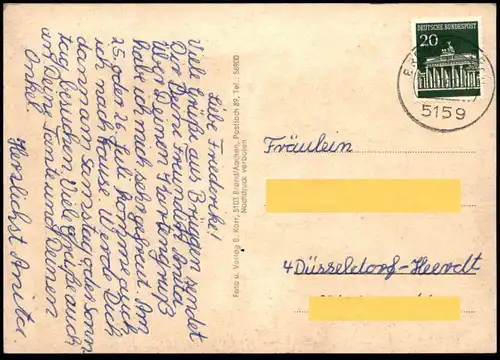 Liebe Friederike!
Viele Grüße aus Brüggen sendet
Dir Deine Freundin Anita
Über Deinen Kartengruß
habe ich mich sehr gefreut. Am
25. oder 26. Juli komme ich
ich nach Hause. Werd Dich
dann am Samstag oder Sonn
tag besuchen. Viele Grüße auch
an Deine Tante und Deinen
Onkel.
Herzlichst Anita.
Foto u. Verlag B. Korr, 5103 Brand/Aachen, Postfach 89, Tel.: 56900
Nachdruck verboten
DEUTSCHE BUNDESPOST
20
5159
Fräulein
4 Düsseldorf-Heerdt